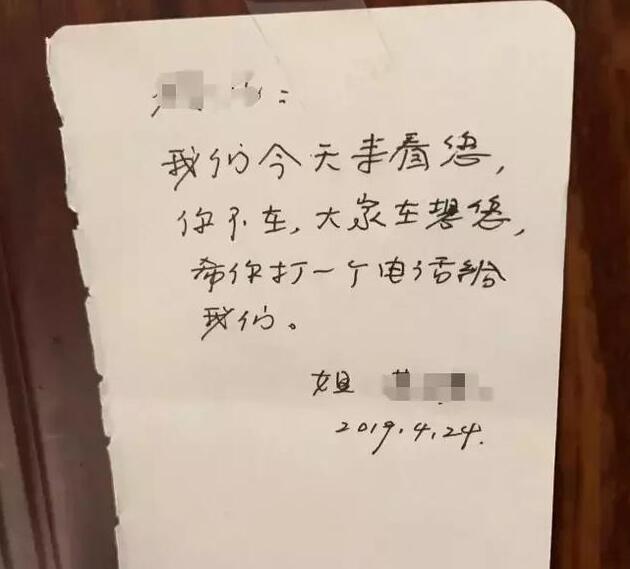 我们今天来看您，
你不在，大家在想您，
希你打一个电话给
我们。
姐
2019.4.24.